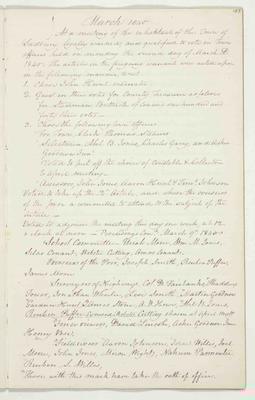 March 1840
At a meeting of the inhabitants of the Town of
Sudbury legally warned and qualified to vote in town
affairs held on monday the second day of March A.D.
1840. The articles in the foregoing warrant were acted upon
in the following manner, to wit
1. Chose John Hunt moderator
2. Gave in their votes for County Treasurer as follows
for Steadman Buttrick of Concord one hundred and
votes
3. Chose the following town officers
For Town Clerk Thomas Stearns
Selectmen Abel B. Jones, Charles Gerry, and Asher
Goodnow Junr
Voted to put off the choice of Constable & Collector
to April meeting
Assessors, John Jones Aaron Hunt & Tems Johnson
Voted to take up the article, and chose the overseers
of the poor a committee to attend to the subject of the
article
Voted to adjourn the meeting this day one week at 12
o'clock at noon Proceedings Cont. March 9th 1840
School Committee Uriah Moore, Wm M. Jones,
Silas Conant, Webster Cutting, Amos Conant.
Overseers of the Poor, Joseph Smith, Reuben Puffer,
James Moore
Surveyors of Highways, Col D. Fairbanks, Thaddeus
Tower, Jonathan Wheeler, Levi Smith, Martin Goodnow
Thomas Stearns, N. H. Hunt, Abel B. Jones
Reuben Puffer, Webster Cutting chosen at April meet
Fence viewers, David Lincoln, Asher Goodnow Jun
Henry Vose,
Field drivers Aaron Johnson, Jesse Willis, Joel
Moore, John Jones, Micah Wight, Nahum Parmenter
Reuben S. Willis,
Those with this mark have take the oath of office